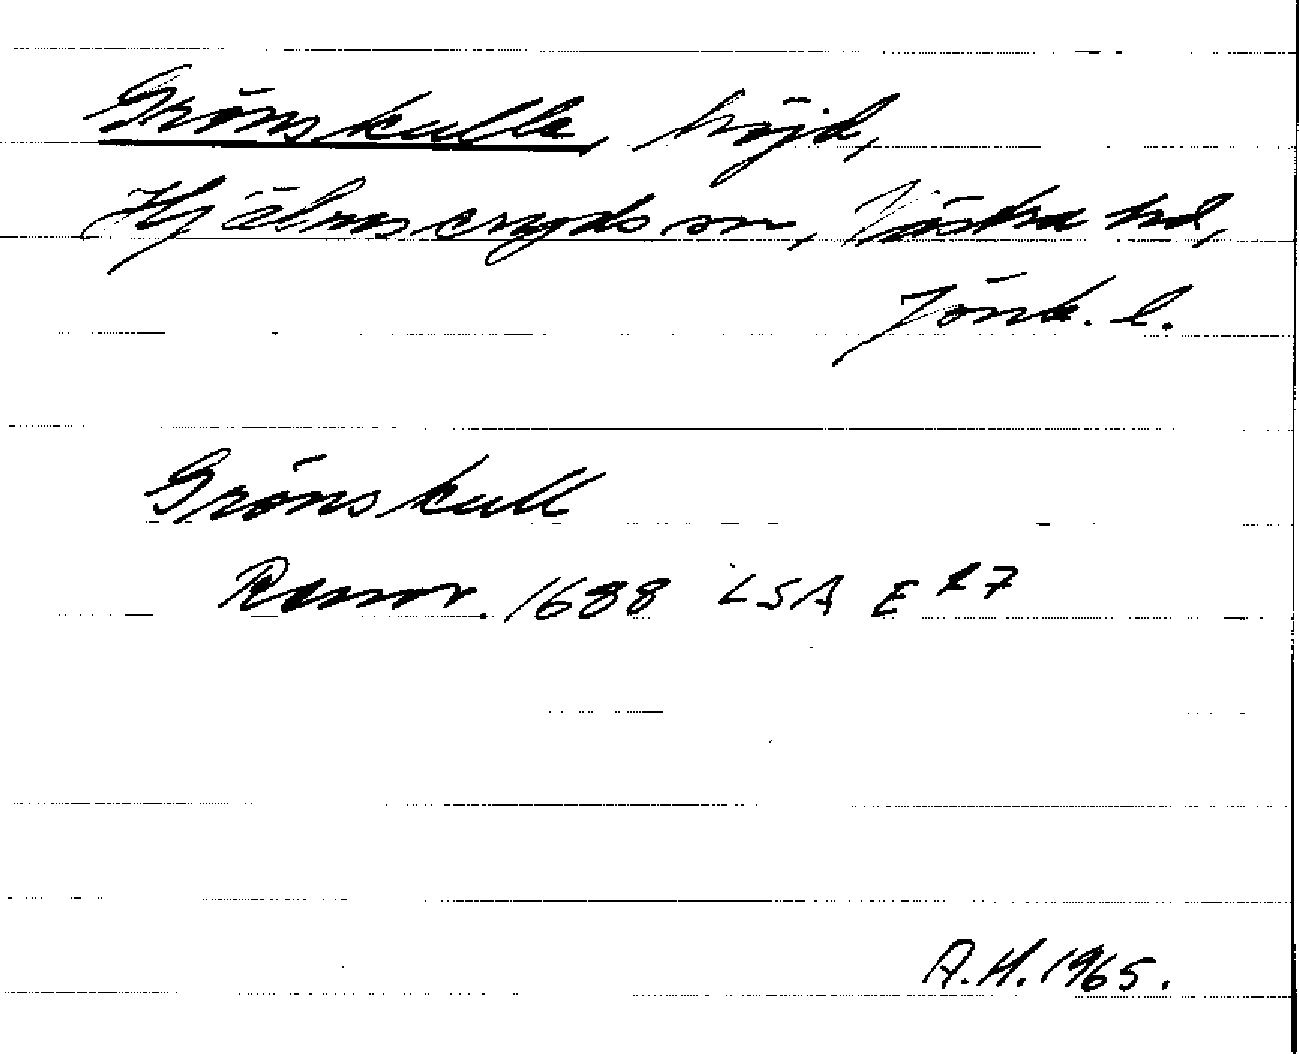 Grönskulle, höjd,
Hjälmseryds sn, Västra hd,
Jönk. l.
Grönskull
Rannor. 1688 LSA E 27
A.H. 1965.